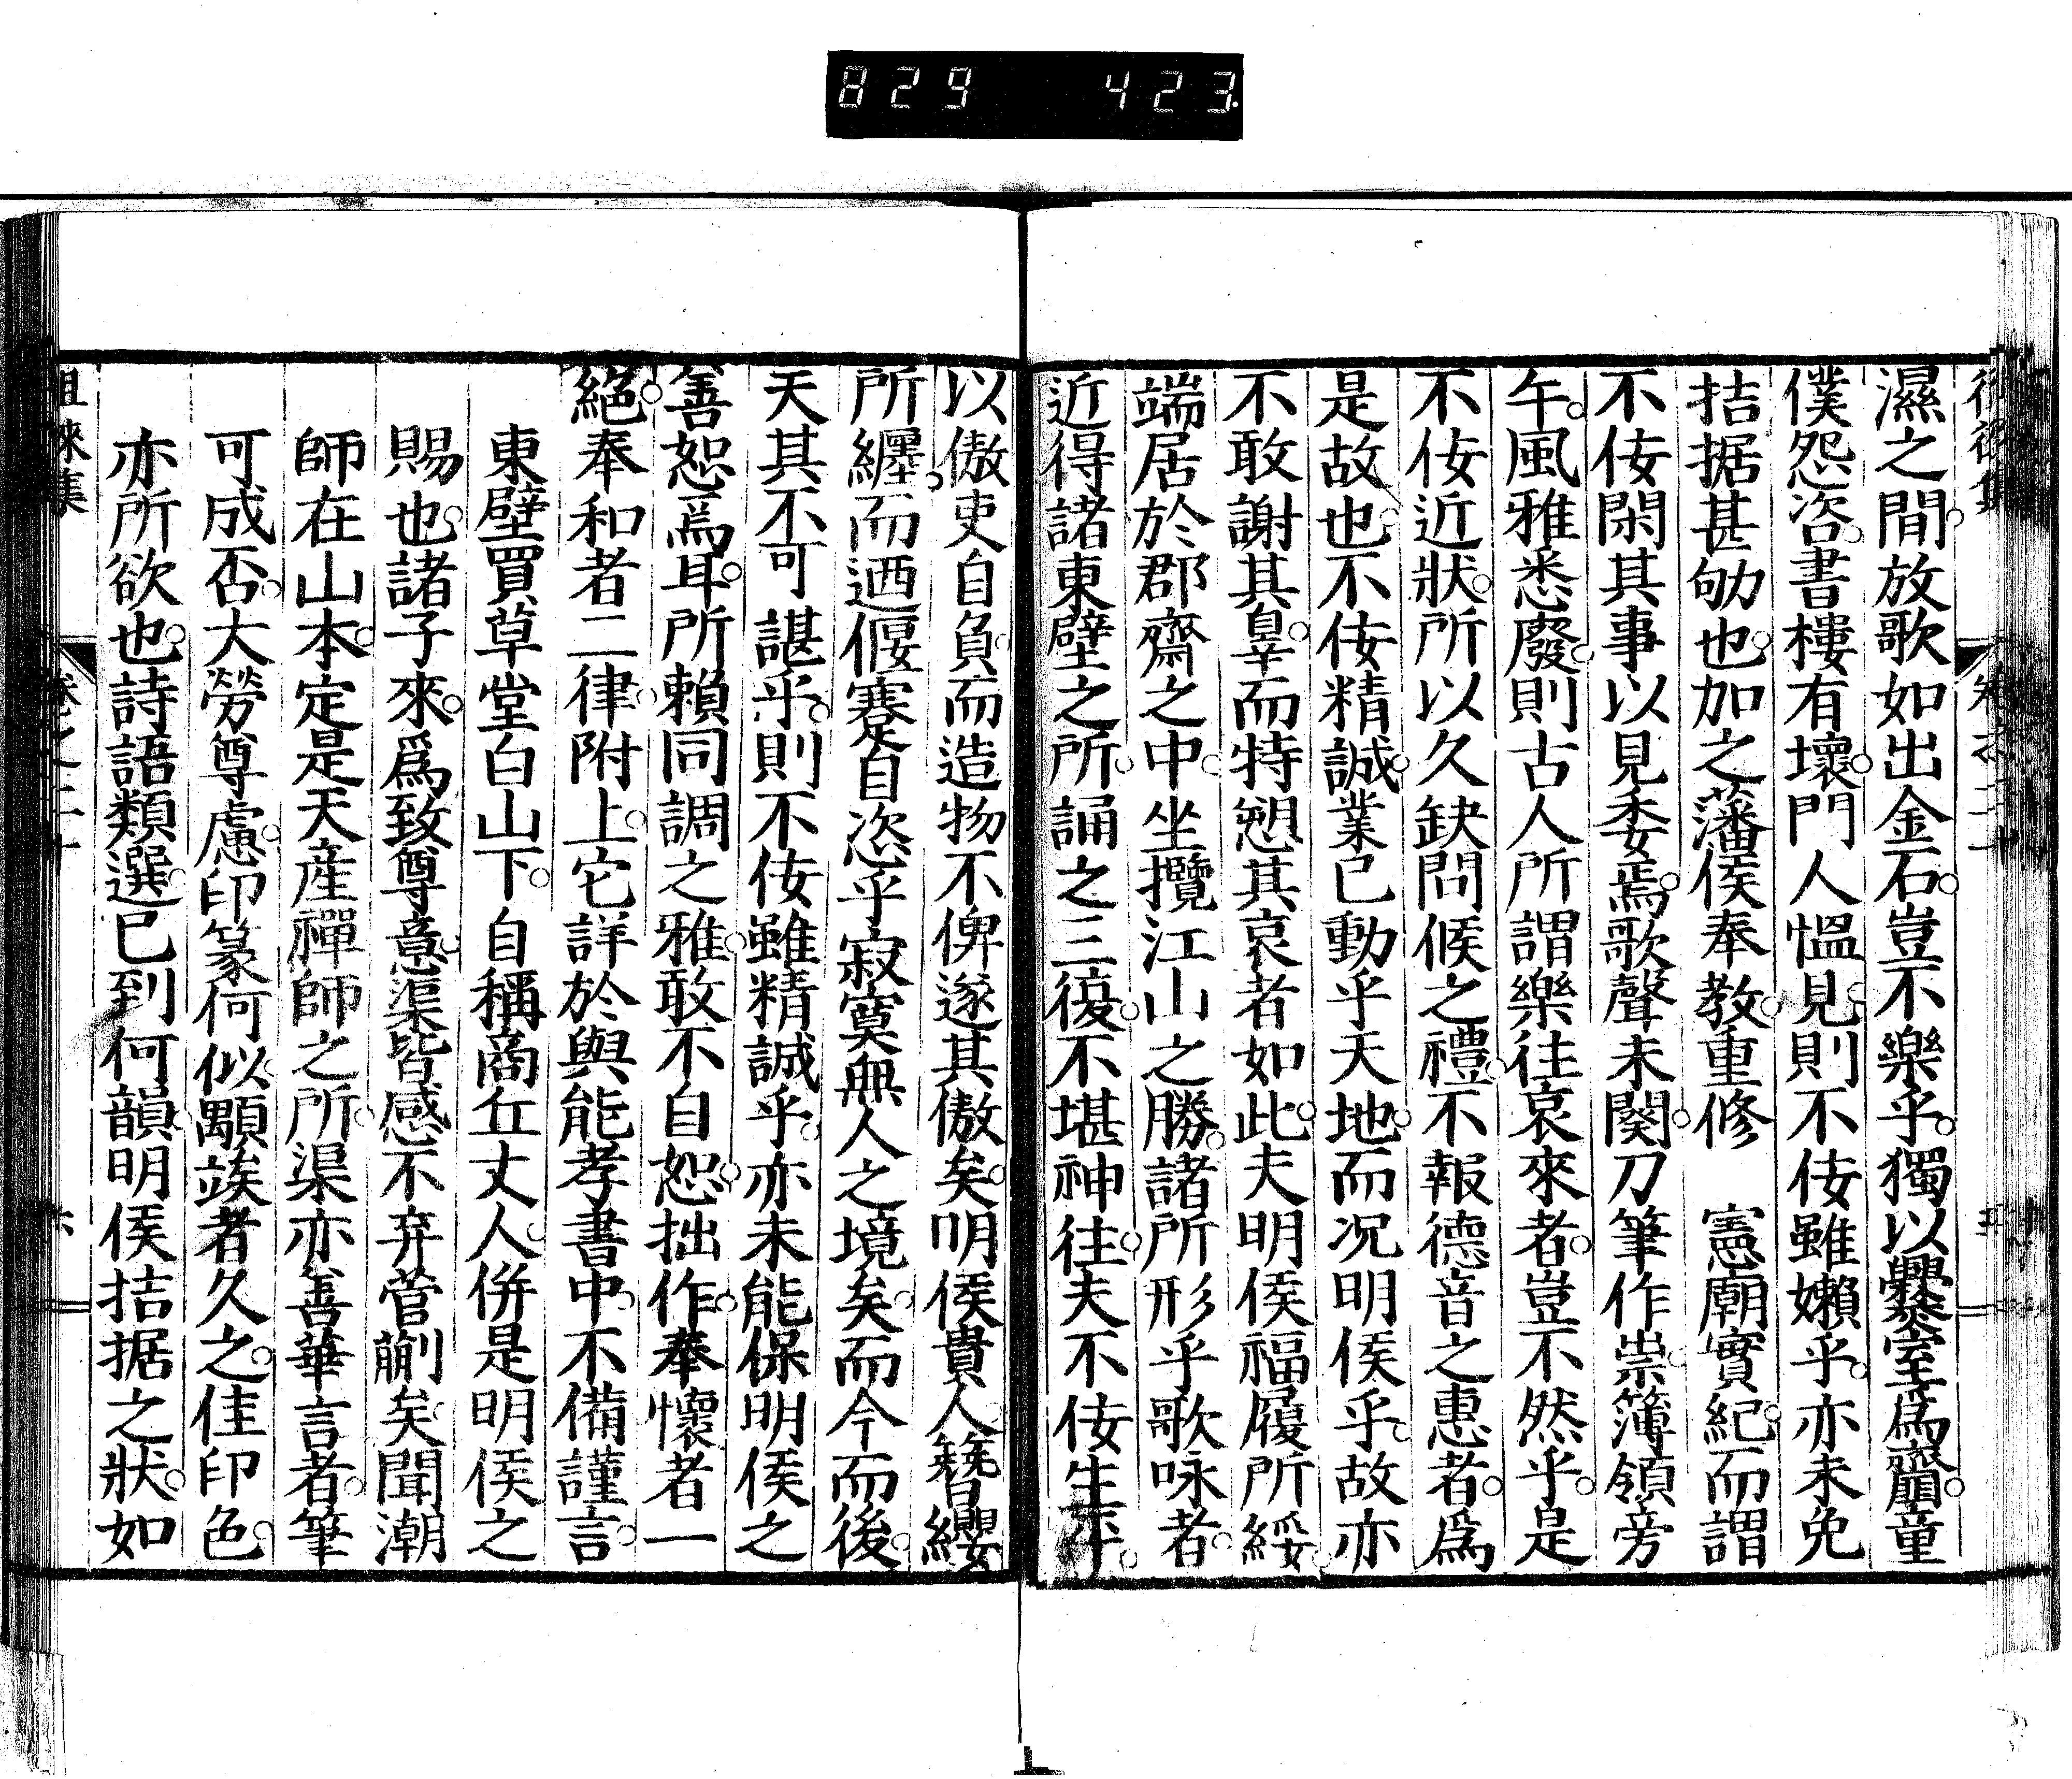 829 423
濕之間放歌如出金石豈不樂乎獨以爨室爲齏童
僕怨咨書樓有壞門人慍見則不佞雖嬾乎亦未免
拮据甚劬也加之藩侯奉教重修 憲廟實紀而謂
不佞閑其事以見委焉歌聲未闋刀筆作祟簿領旁
午風雅悉廢則古人所謂樂往哀來者豈不然乎是
不佞近狀所以久缺問候之禮不報德音之惠者爲
是故也不佞精誠業已動乎天地而况明侯乎故亦
不敢謝其辠而特愬其哀者如此夫明侯福履所綏
端居於郡齋之中坐攬江山之勝諸所形乎歌咏者
近得諸東壁之所誦之三復不堪神往夫不佞生平
以傲吏自負而造物不俾遂其傲矣明侯貴人簪纓
所纏而迺偃蹇自恣乎寂寞無人之境矣而今而後
天其不可諶乎則不佞雖精誠乎亦未能保明侯之
善恕焉耳所賴同調之雅敢不自恕拙作奉懷者一
絕奉和者二律附上它詳於與能孝書中不備謹言
東壁買草堂白山下自稱商丘丈人併是明侯之
賜也諸子來爲致尊意渠皆感不弃菅蒯矣聞潮
師在山本定是天產禪師之所渠亦善華言者筆
可成否大勞尊慮印篆何似顒竢者久之佳印色
亦所欲也詩語類選已到何韻明侯拮据之狀如
徂徠集 卷之二十 六